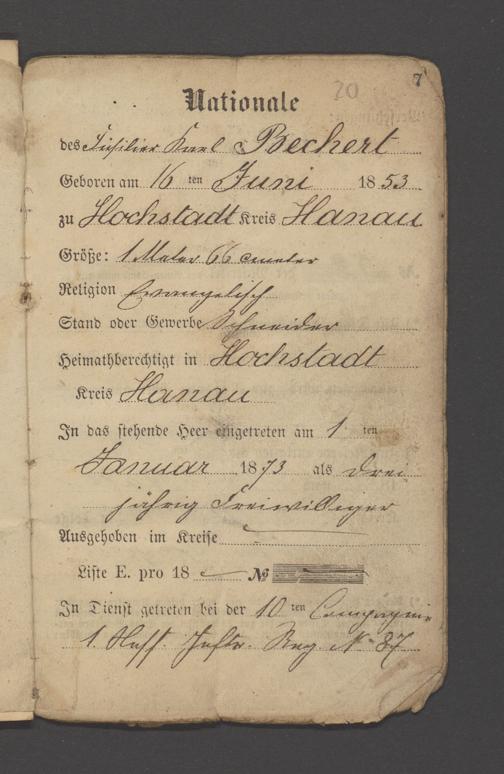 7
20
Nationale
des Füsilier Karl Bechert
Geboren am 16 ten Juni 1853
zu Hochstadt Kreis Hanau
Größe: 1 Meter 66 cmeter
Religion Evangelisch
Stand oder Gewerbe Schneider
Heimathberechtigt in Hochstadt
Kreis Hanau
In das stehende Heer eingetreten am 1 ten
Januar 1873 als drei
jährig Freiwilliger
Ausgehoben im Kreise
Liste E. pro 18 №
In Dienst getreten bei der 10 ten Compagnie
1. Inftr. Reg. № 87